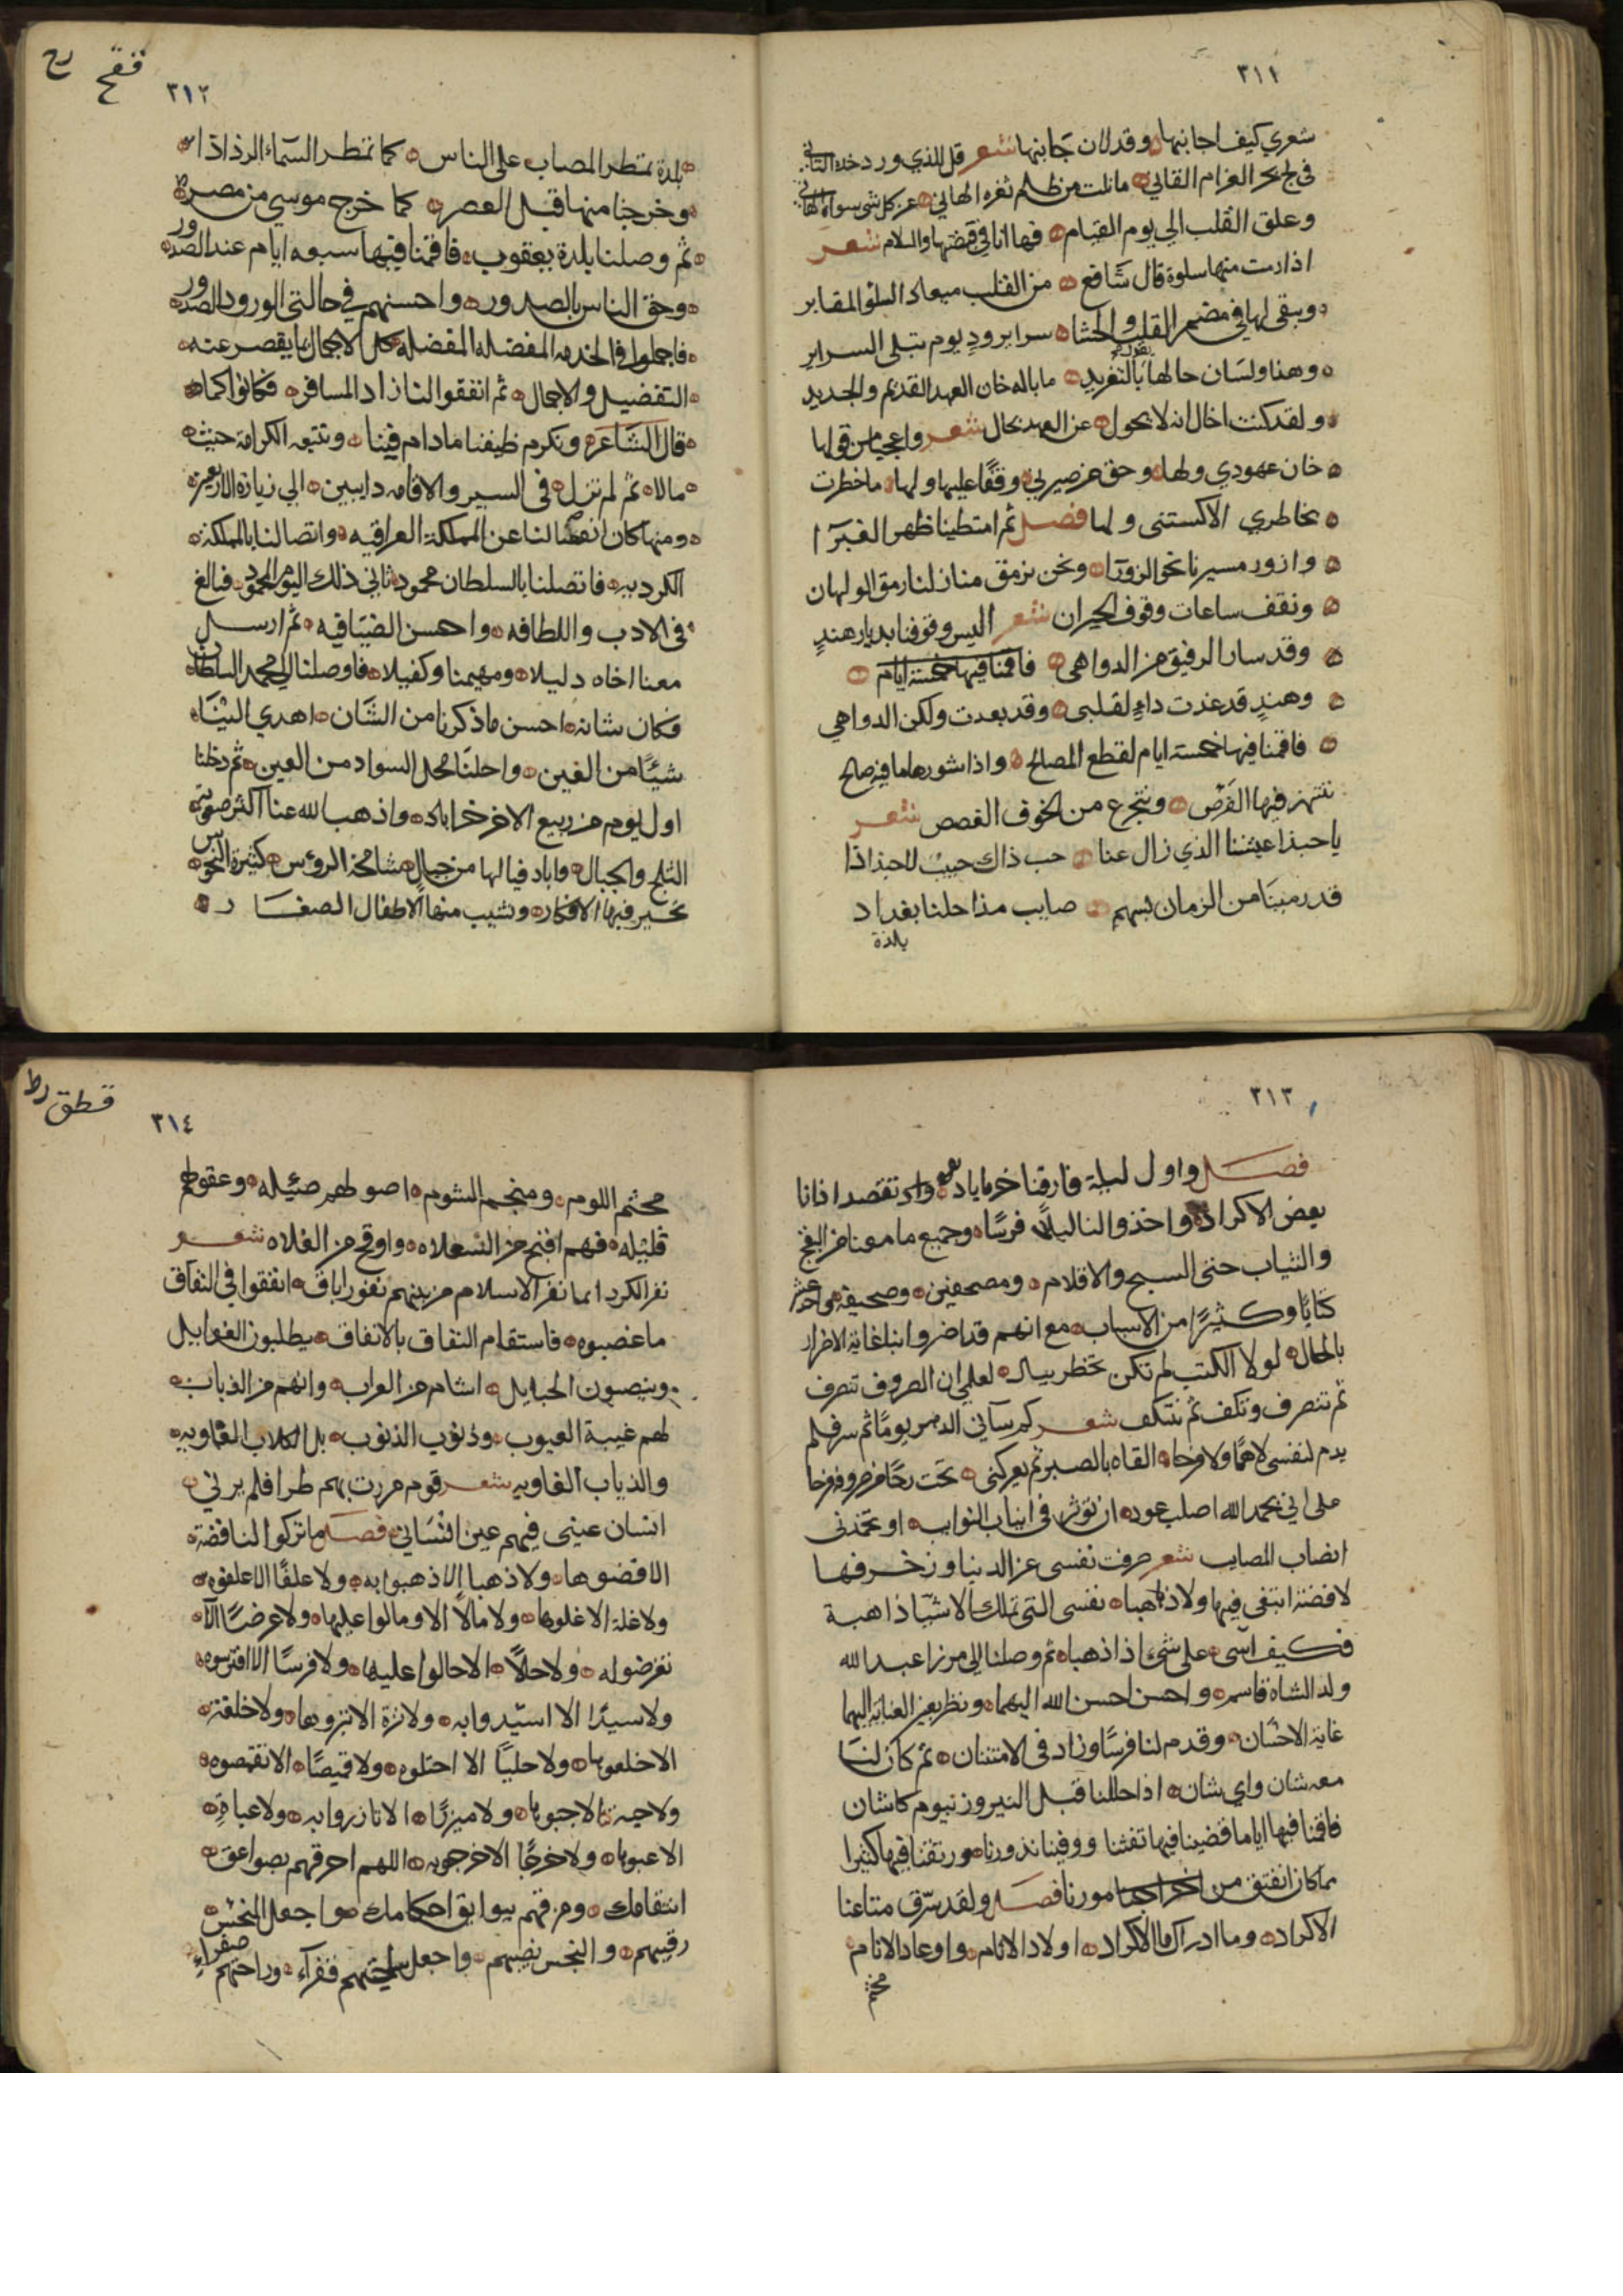 ٣١١
شعري كيف اجابنها وقد لان جابنها شعر قل للذي ورد خده القاني
في لج بحر الغرام القاني ما نلت من ظلم ثغره الهاني عن كل شي سواه الهاني
وعلق القلب الي يوم القيام فها انا في قبضتها والسلام شعر
اذا رمت منها سلوة قال شافع من القلب ميعاد السلو المقابر
ويبقى لها في مضمر القلب والحشا سراير ود يوم تبلى السراير
وهنا ولسان حالها يقول بالتغريد ما باله خان العهد القديم والجديد
ولقد كنت اخال انه لا يحول عن العهد بحال شعر واعجبا من قولها
خان عهودي ولها وحق من صيرني وقفًا عليها ولها ما خطرت
بخاطري الا كستنى ولها فصل ثم امتطينا ظهر الغبرا
وازور مسيرنا نحو الزورآ ونحن نرمق منازلنا رمق الولهان
ونقف ساعات وقوف الحيران شعر اليس وقوفنا بديار هندٍ
وقد سار الرفيق من الدواهي فاقمنا فيها خمسة ايام
وهندٍ قد غدت داءٍ لقلبى وقد بعدت ولكن الدواهي
فاقمنا فيها خمسة ايام لقطع المصالح واذا شورها ما فيه صالح
ننتهز فيها الفرص ونتجرع من الخوف الغصص شعر
يا حبذا عيشنا الذي زال عنا حب ذاك حيث للحبذا ذا
قد رمينا من الزمان بسهم صايب مذ احلنا بغداد
بلدة
فقح رح
٣١٢
بلدة تمطر المصاب على الناس كما تمطر السمآء الرذاذا
وخرجنا منها قبل العصر كما خرج موسي من مصره
ثم وصلنا بلدة بعقوب فاقمنا فيها سبعه ايام عند الصدور
وحق الناس بالصدور واحسنهم في حالتى الورود والصدور
فاجملوا في الخدمه المفضله المفضله كل الاجمال ما يقصر عنه
التفضيل والاجمال ثم انفقوا لنا زاد المسافر فكانوا كما
قال الشاعر ونكرم ضيفنا ما دام فينا ونتبعه الكرامة حيث
مالا ثم لم نزل في السير والاقامه دايبين الي زيارة الاربعين
ومنها كان انفصالنا عن المملكة العراقيه واتصالنا بالمملكة
الكرديه فاتصلنا بالسلطان محمود ثاني ذلك اليوم المحمود فبالغ
في الادب واللطافه واحسن الضيافيه ثم ارسل
معنا اخاه دليلا ومهيمنا وكفيلا فاوصلنا الي محمد السلطان
فكان شانه احسن ما ذكرنا من الشان اهدي الينا
شيئًا من الغين واحلنا محل السواد من العين ثم دخلنا
اول يوم من ربيع الاخر خراباد واذهب الله عنا اكثر صوبة
الثلج والجبال فاباد فيالها من جبال شامخة الرؤس كثيرة النحوس
تحير فيها الافكار وتشيب منها الاطفال الصغار
٣١٣
فصل واول ليلة فارقنا خرماباد تقصد اذانا
بعض الاكراد واخذوا لنا ليلًا فرسًا وجميع ما معنا من البقج
والثياب حتى السبح والاقلام ومصحفين وصحيفة واحد عشر
كتابًا وكثيرًا من الاسباب مع انهم قد اضروا بنا غاية الاضرار
بالحال لولا الكتب لم تكن تخطر ببال لعلمي ان الصروف تصرف
ثم تنصرف وتكف ثم تنتكف شعر كم سآني الدهر يومًا ثم سر فلم
يدم لنفسى لا همًا ولا فرحا القاه بالصبر ثم يعركنى تحت رحًا من صروفه فرحا
على اني بحمد الله اصلب عود ان تؤثر في انياب النوايب او تخدنى
انصاب المصايب شعر صرفت نفسى عن الدنيا وزخرفها
لا فضة ابتغى فيها ولا ذهبا نفسى التى تملك الاشيآ ذاهبة
فكيف آسى على شيء اذا ذهبا ثم وصلنا الى مرزا عبد الله
ولد الشاه قاسم واحسن احسن الله اليهما ونظر بعين العناية اليهما
غاية الاحسان وقدم لنا فرسًا وزاد في الامتنان ثم كان لنا
معه شان واي شان اذا حللنا قبل النيروز بيوم كاشان
فاقمنا فيها اياما قضينا فيها تفثنا ووفينا نذورنا ورتقنا فيها كثيرا
مما كان انفتق من امورنا فصل ولقد سرق متاعنا
الاكراد وما ادراك ما الاكراد اولاد الانام واوغاد الانام
مخيم
قطق رط
٣١٤
مخيم اللوم ومنجم الشوم اصولهم ضئيله وعقولهم
قليله فهم اقبح من السعلاه واوقح من الفلاه شعر
نفر الكرد انما نفر الاسلام من بينهم نفور اباق انفقوا في النفاق
ما غصبوه فاستقام النفاق بالانفاق يطلبون الغوايل
وينصبون الحبايل اشام من الغراب وانهم من الذباب
لهم غيبة العيوب وذنوب الذنوب بل الكلاب العاويه
والذباب الغاويه شعر قوم مررت بهم طرا فلم يرني
انسان عينى فيهم عين انساني فصل ما تركوا لنا فضة
الا فضوها ولا ذهبا الا ذهبوا به ولا علفًا الا علفوه
ولا غلة الا غلوها ولا مالًا الا ومالوا عليها ولا عرضًا الا
تعرضوا له ولا حلًا الا حالوا عليها ولا فرسًا الا افترسوه
ولا سيدًا الا استيدوا به ولا نزة الا نتزوها ولا خلعة
الا خلعوها ولا حليبًا الا احتلوه ولا قميصًا الا تقمصوه
ولا جبة الا جبوها ولا ميزرًا الا تازروا به ولا عباةٍ
الا عبوها ولا خرجًا الا خرجوبه اللهم احرقهم بصواعق
انتقامك ومزقهم ببوايق احكامك واجعل النحس
رقيبهم والنجس نصيبهم واجعل ساحتهم فقرآء وراحتهم صفراء